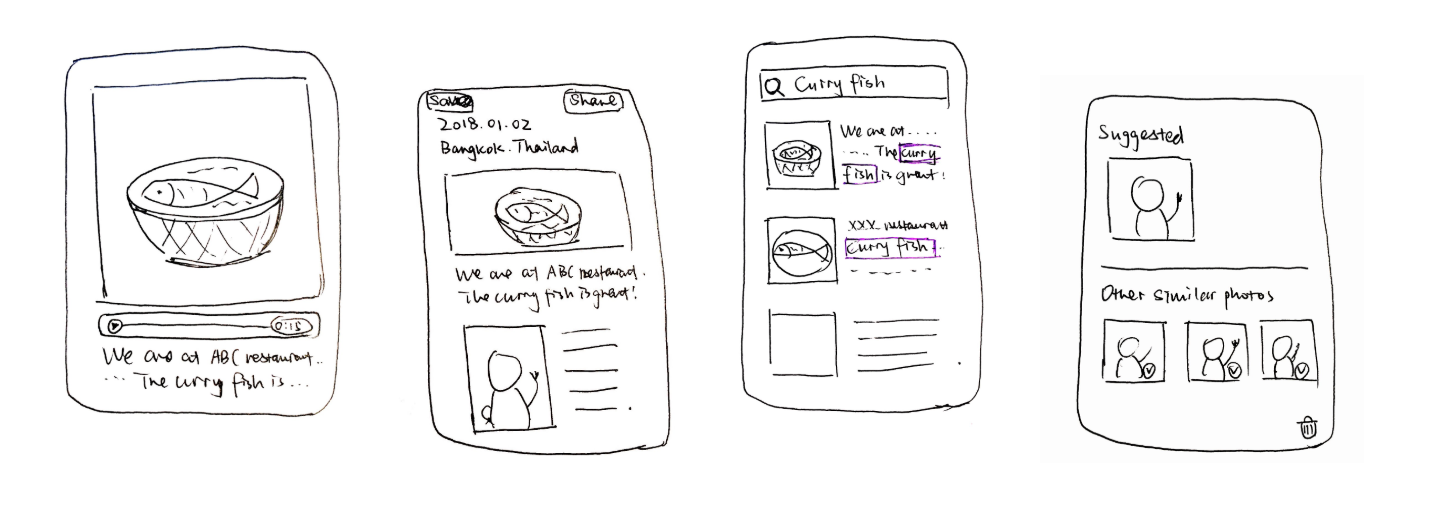 0:15
We are at ABC restaurant..
... The curry fish is ...
Save
Share
2018.01.02
Bangkok. Thailand
We are at ABC restaurant.
The curry fish is great!
Curry fish
We are at ....
.... The curry
fish is great!
XXX restaurant
Curry fish..
Suggested
Other similar photos